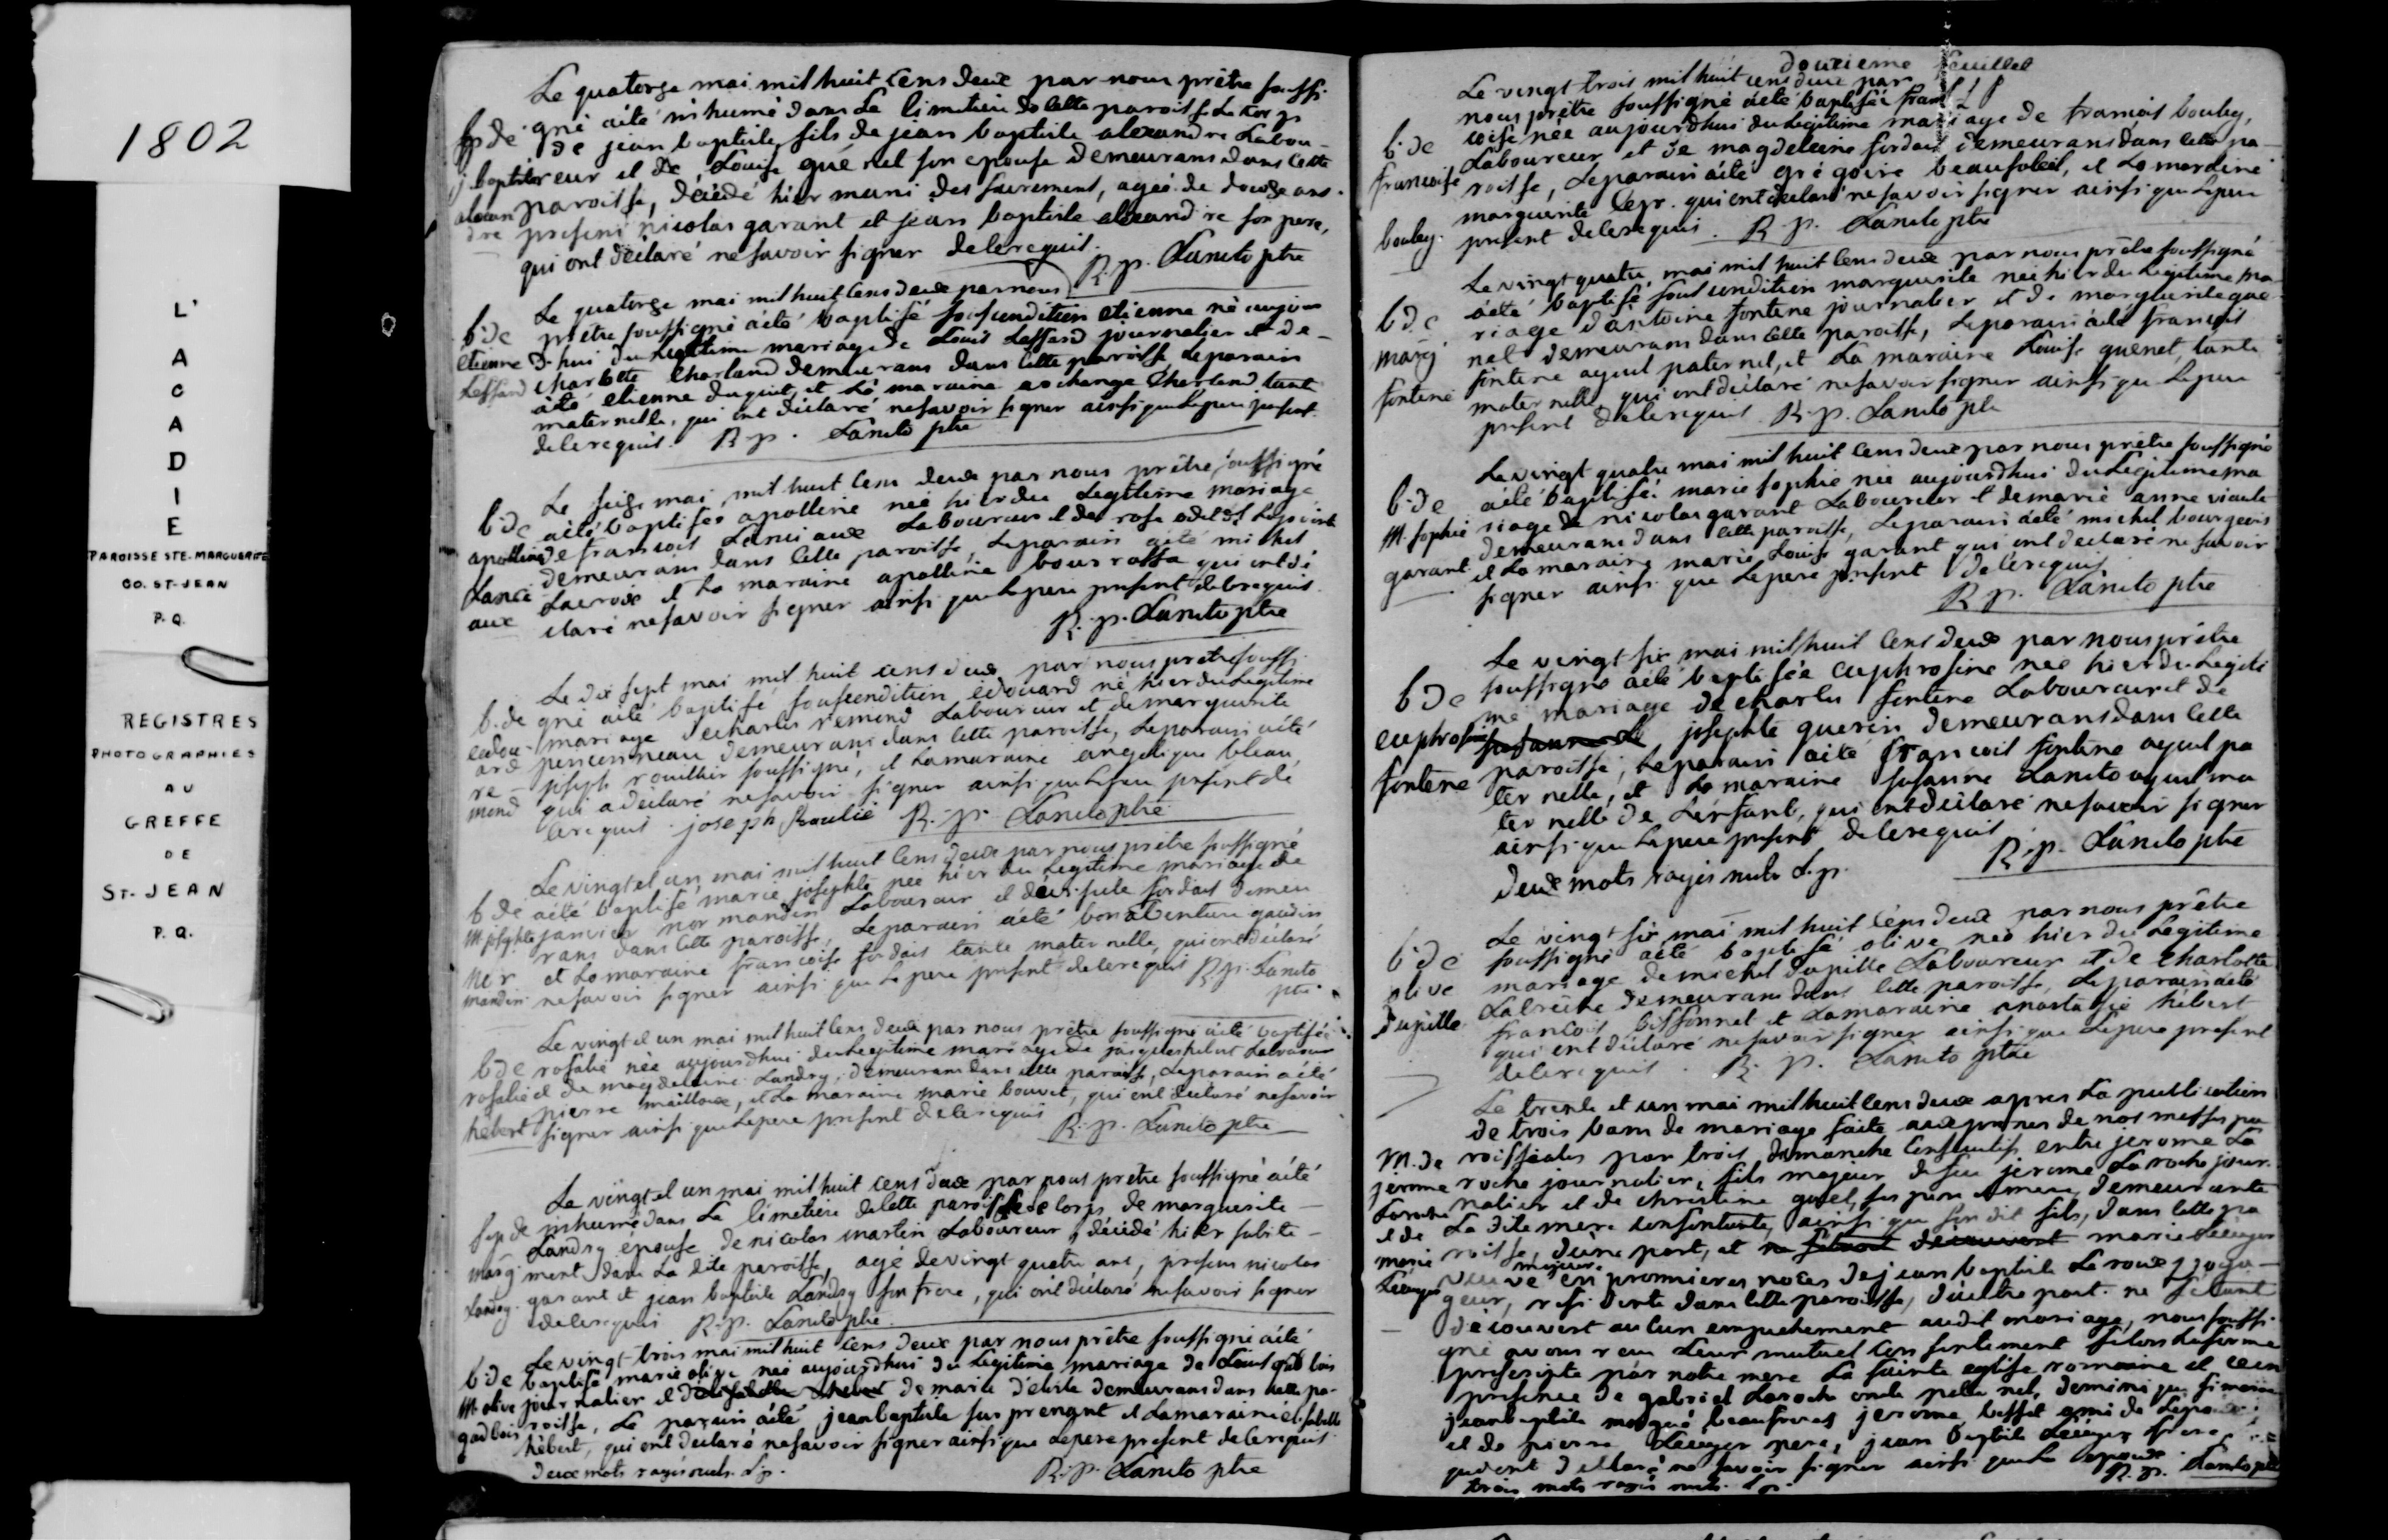 1802
L'
A
C
A
D
I
E
PAROISSE STE. MARGUERITE
CO. ST-JEAN
P.Q.
REGISTRES
PHOTOGRAPHIES
AU
GREFFE
DE
ST-JEAN
P.Q.
Le quatorze mai mil huit cens deux par nous prêtre soussi
Sp de gné aété inhumé dans le cimetiere de cette paroisse le corps
de jean baptiste fils de jean baptiste alexandre Labou-
j. baptiste reur et de Louise quenel son epouse demeurans dans cette
alexan paroisse, décédé hier muni des sacrement, ageé de douze ans.
dre present nicolas garant et jean baptiste alexandre son pere,
qui ont déclaré ne savoir signer delerequit. R. p. Lancto ptre
Le quatorze mai mil huit cens deux par nous
b: de prêtre soussigné aété baptisé sous condition etienne né aujour
etienne d'hui du Legitime mariage de Louis Lassard journalier et de
Lassard charlotte charland demeurans dans cette paroisse Leparain
aété etienne duquet, et La maraine archange charland tante
maternelle, qui ont déclaré ne savoir signer ainsi que Lepere present
delerequit. R. p. Lancto ptre
Le seize mai mil huit cens deux par nous prêtre soussigné
b: de aété baptisée apolline neé hier du Legitime mariage
apolline de francois Lanciaux Laboureur et de rose
demeurans dans cette paroisse, Leparain aété michel
Lanci Lacroix et La maraine apolline bourrassa qui ont dé
aux claré ne savoir signer ainsi que Lepere present delerequit.
R. p. Lancto ptre
Le dix sept mai mil huit cens deux par nous prêtre soussi
b. de gné aété baptisé sous condition édouard né hier du Legitime
edou- mariage de charles remond Laboureur et de marguerite
ard pinsonneau demeurans dans cette paroisse, Leparain aété
re- joseph rouillier soussigné, et La maraine angelique bleau,
mond qui a déclaré ne savoir signer ainsi que Lepere present de
lerequit. joseph Roulié R. p. Lancto ptre
Le vingt et un mai mil huit cens deux par nous prêtre soussigné
b de aété baptisé marie josephte neé hier du Legitime mariage de
M josephte janvier normandin Laboureur et d'ursule fordais demeu
rans dans cette paroisse, Leparain aété bonaventure gaudin
nor et La maraine francoise fordais tante maternelle, qui ont déclaré
mandin ne savoir signer ainsi que Le pere present delerequit R. p. Lancto
ptre
Le vingt et un mai mil huit cens deux par nous prêtre soussigné aété baptiseé
b de rosalie neé aujourdhui du Legitime mariage de jacques hebert Laboureur
rosalie et de magdeleine Landry, demeurans dans cette paroisse, Leparain aété
pierre mailloux, et La maraine marie bouvet, qui ont déclaré ne savoir
hebert signer ainsi que Lepere present delerequis
R. p. Lancto ptre
Le vingt et un mai mil huit cens deux par nous prêtre soussigné aété
Sep de inhumé dans Le cimetiere de cette paroisse le corps de marguerite
Landry épouse de nicolas martin Laboureur, décédé hier subite-
marg ment dans La dite paroisse, agé de vingt quatre ans, presens nicolas
Landry. garant et jean baptiste Landry son frere, qui ont déclaré ne savoir signer
delerequis R. p. Lancto ptre
Le vingt-trois mai mil huit cens deux par nous prêtre soussigné aété
b: de baptisé marie olive neé aujourdhui du Legitime mariage de Louis gadbois
M olive journalier et d'elisabette hebert de marie demeurans dans cette pa-
gadbois roisse, Le parain aété jean baptiste surprenant et La maraine elisabelle
hébert, qui ont déclaré ne savoir signer ainsi que Lepere present delerequit
deux mots rayés nuls. L. p. R. p. Lancto ptre
douzieme feuillet
Le vingt trois mil huit cens deux par
nous prêtre soussigné aété baptiseé fran
b: de coise née aujourdhui du Legitime mariage de francois bouley,
Laboureur et de magdeleine fordais demeurans dans cette pa-
francoise roisse, Leparain aété grégoire beausoleil, et La maraine
marguerite qui ont déclaré ne savoir signer ainsi que Lepere
bouley. present delerequis. R. p. Lancto ptre
Le vingt quatre mai mil huit cens deux par nous prêtre soussigné
b de aété baptisé sous condition marguerite neé hier du Legitime ma
riage d'antoine fontene journalier et de marguerite que
marg nel demeurans dans cette paroisse, Leparain aété francois
fontene ayeul paternel, et La maraine Louise quenel, tante
fontene maternelle, qui ont déclaré ne savoir signer ainsi que Lepere
present delerequit R. p. Lancto ptre
Le vingt quatre mai mil huit cens deux par nous prêtre soussigné
b. de aété baptiseé marie sophie neé aujourdhui du Legitime ma
M. sophie riage de nicolas garant Laboureur et de marie anne viault
demeurans dans cette paroisse, Leparain aété michel bourgeois
garant et La maraine marie Louise garant qui ont déclaré ne savoir
signer ainsi que Lepere present delerequis
R. p. Lancto ptre
Le vingt six mai mil huit cens deux par nous prêtre
b de soussigné aété baptisée euphrosine neé hier du Legiti
me mariage de charles fontene Laboureur et de
euphrosine josephte guerin demeurans dans cette
paroisse, Leparain aété francois fontene ayeul pa
fontene ternelle, et La maraine susanne Lancto ayeul ma
ternelle de Lenfant, qui ont déclaré ne savoir signer
ainsi que Lepere present delerequit
deux mots rayés nuls L. p. R. p. Lancto ptre
Le vingt six mai mil huit cens deux par nous prêtre
b: de soussigné aété baptisé olive neé hier du Legitime
olive mariage de michel dupille Laboureur et de charlotte
Labreche demeurans dans cette paroisse, Leparain aété
dupille francois bissonnet et La maraine anastasie hébert
qui ont déclaré ne savoir signer ainsi que Lepere present
delerequit. R. p. Lancto ptre
Le trente et un mai mil huit cens deux apres La publication
de trois bans de mariage faite aux prones de nos messes pa
M. de roissiales par trois dimanche consecutifs entre jerome La
jerome roche journalier, fils majeur de feu jerome Laroche jour-
Laroche nalier et de christine ses pere et mere demeurante
et de La dite mere consentante, ainsi que son dit fils, dans cette pa
marie roisse, d'une part, et ne setant decouvert marie
majeure
veuve en premieres noces de jean baptiste voya-
geur, residente dans cette paroisse, d'autre part. ne setant
decouvert aucun empechement audit mariage, nous soussi
gné avons recu Leur mutuel consentement selon La forme
prescripte par notre mere La sainte eglise romaine et ce en
presence de gabriel Laroche oncle paternel,
jean baptiste beaufrere, jerome ami de
et de pierre pere, jean baptiste frere
qui ont déclaré ne savoir signer ainsi que La epouse
trois mots rayés nuls. L. p. R. p. Lancto ptre